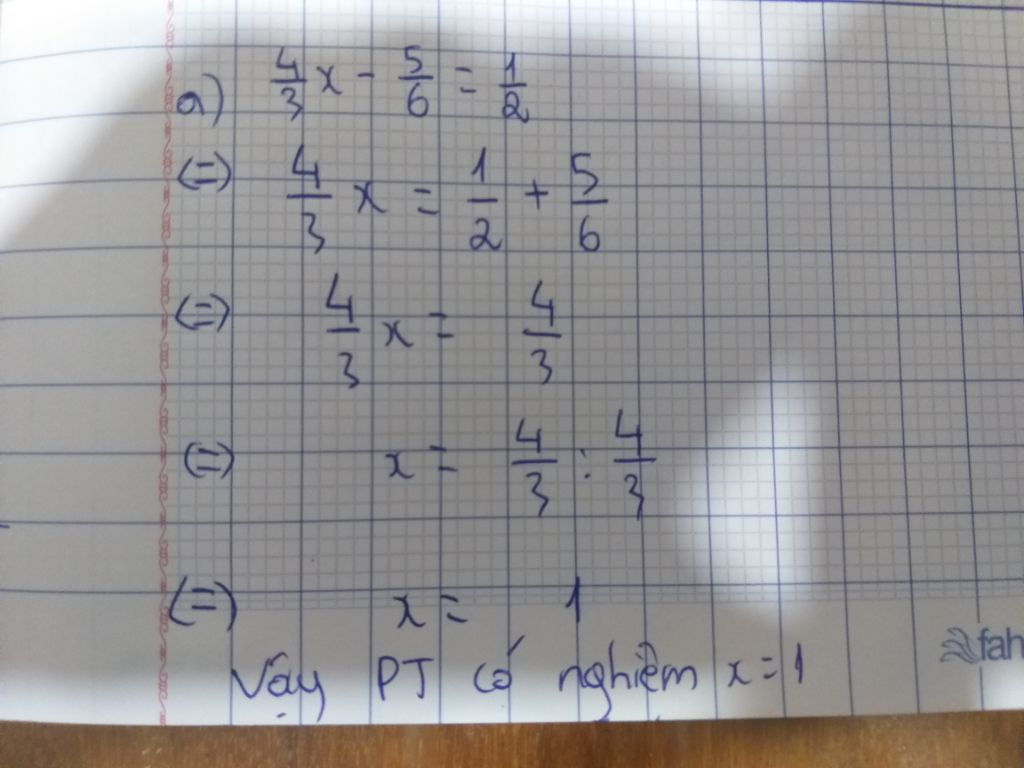 a) 4/3 x - 5/6 = 1/2
(=) 4/3 x = 1/2 + 5/6
(=) 4/3 x = 4/3
(=) x = 4/3 : 4/3
(=) x = 1
Vậy PT có nghiệm x = 1
fah